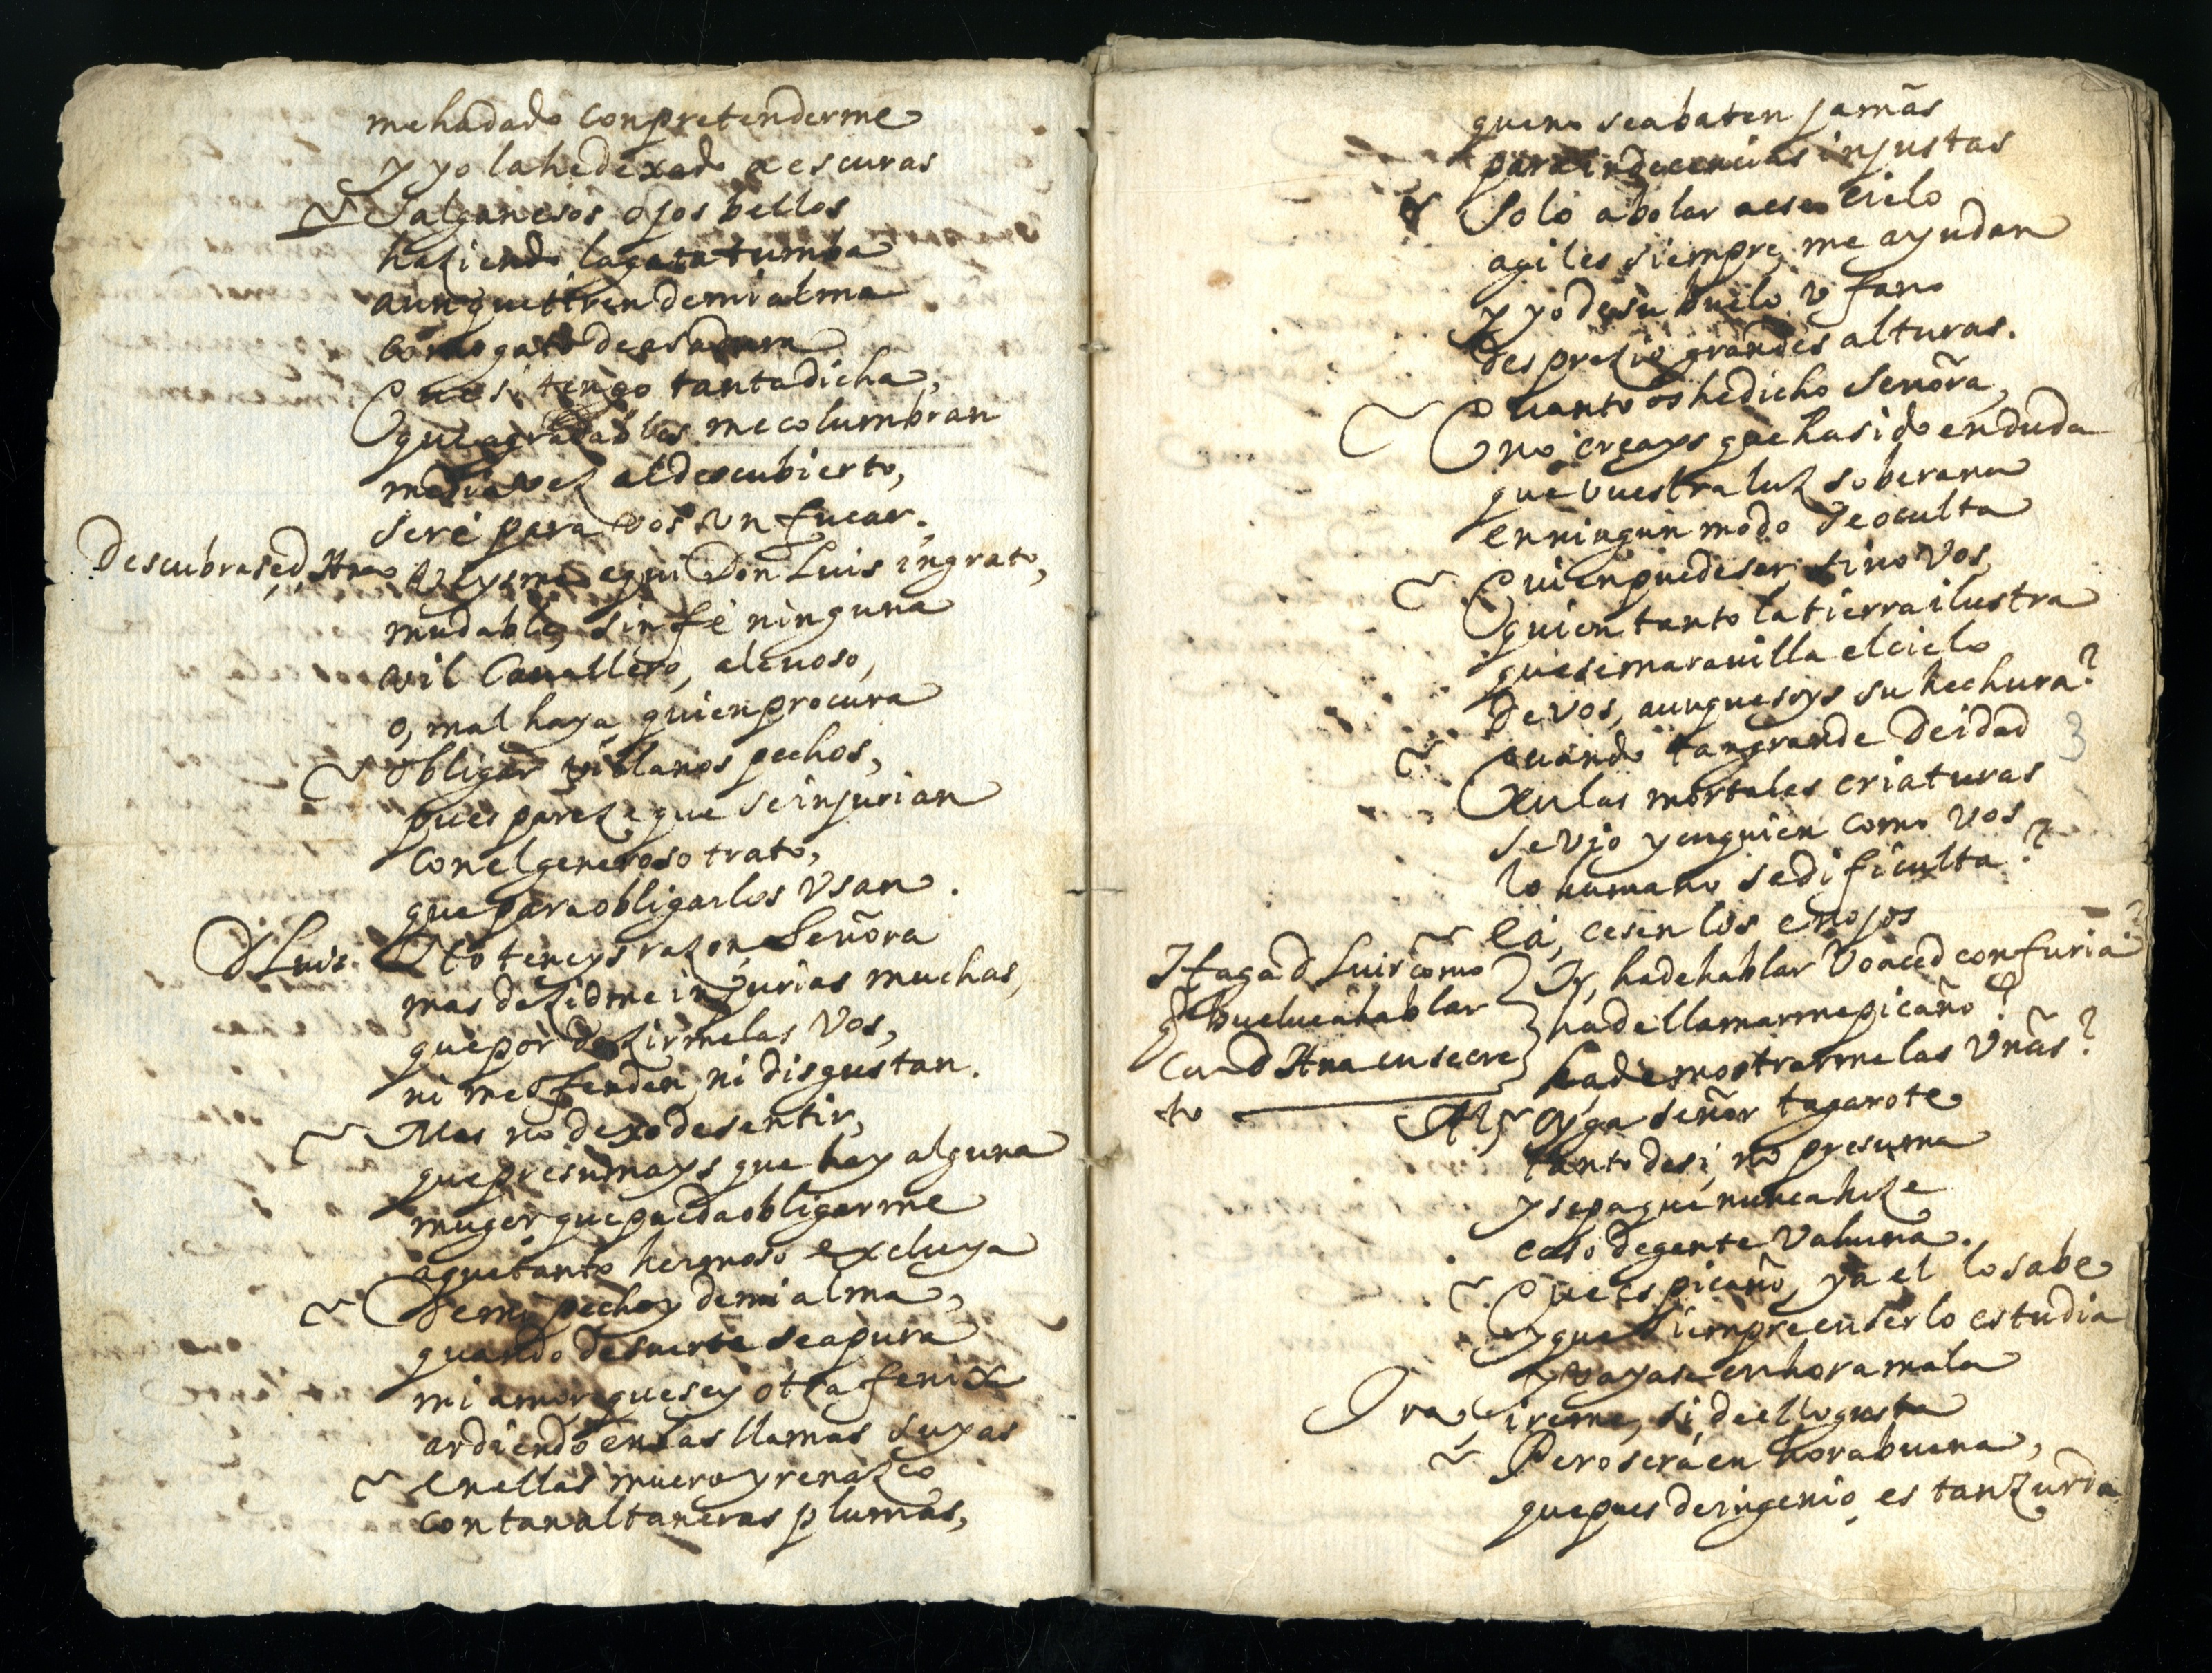 me ha dado con pretenderme
y yo la he dexado a escuras
Salgan esos ojos bellos
haziendo la gatatumba
aunque tiren de mi alma
como gato de asadura
Que si tengo tanta dicha,
que agradables me columbran
media vez al descubierto,
seré para vos un fucar.
Descubrase d. Ana Veysme aqui Don Luis ingrato,
mudable, sin fé ninguna
vil Cauallero, aleuoso,
o, mal haya quien procura
obligar villanos pechos,
pues pareze que se injurian
con el generoso trato,
que para obligarlos vsan.
D Luis. No teneys razon, Señora
mas dezidme injurias muchas,
que por dezirmelas vos,
ni me ofenden, ni disgustan.
Mas no dexo de sentir,
que presumays que hay alguna
muger que pueda obligarme
a que tanto hermoso excluya
De mi pecho y de mi alma,
quando de suerte se apura
mi amor, que soy otra fenix
ardiendo en las llamas suyas
En ellas muero y renazco
con tan altaneras plumas,
que no se abaten jamás
para indecencias injustas
Solo a bolar a ese cielo
agiles siempre, me ayudan
y yo de su buelo vfano
desprezio grandes alturas.
Quanto os he dicho Señora,
no creays que ha sido en duda
que vuestra luz soberana
en ningun modo se oculta
Quien puede ser, sino vos
quien tanto la tierra ilustra
que se marauilla el cielo
de vos, aunque soys su hechura?
quando tan grande deidad
3
en las mortales criaturas
se vio y en quien como vos
lo humano se dificulta?
Ea, cesen los enojos
Haga d Luis como
q buelue a hablar
con d Ana en secre
to
Y, ha de hablar voaced con furia?
ha de llamarme picaño?
ha de mostrarme las vñas?
Al. oyga señor tagarote
tanto de si, no presuma
y sepa que nunca hize
caso de gente vahuna.
Que es picaño, ya el lo sabe
y que siempre en serlo estudia
y vayase en hora mala
Gra. ireme, si, de ello gusta
Pero será en hora buena,
que pues de ingenio es tan zurda